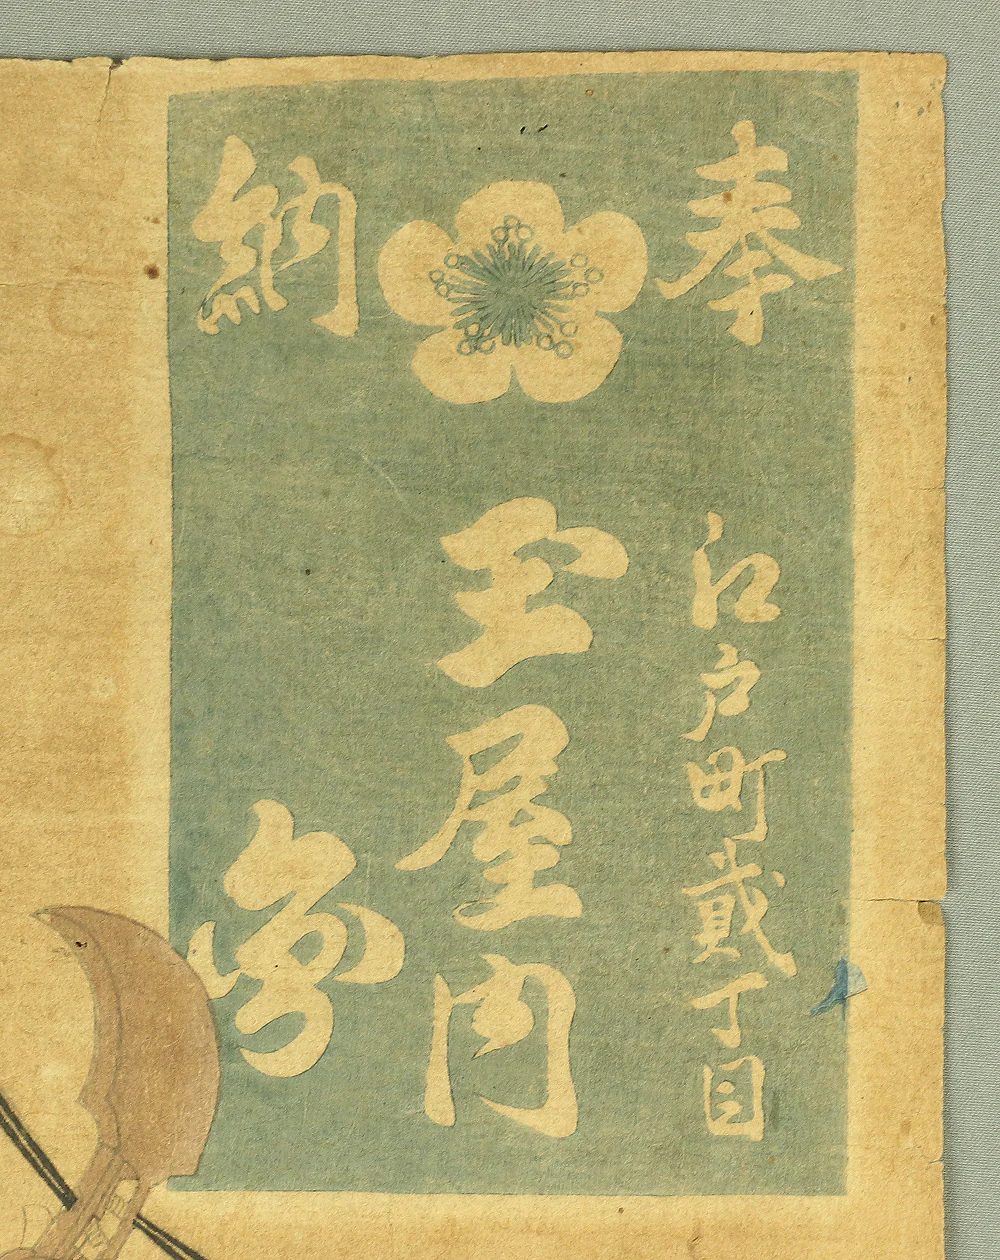 奉納
江戸町貳丁目
玉屋内